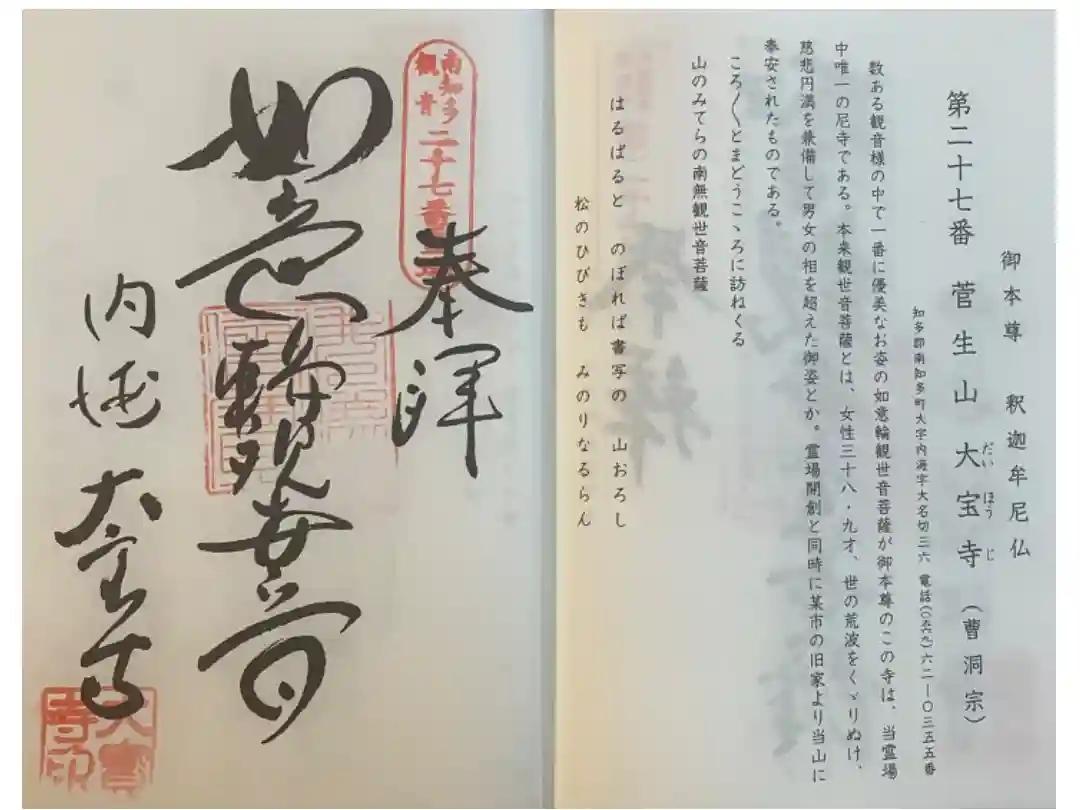 御本尊　釈迦牟尼仏
第二十七番　菅生山　大宝寺（曹洞宗）
だい　ほう　じ
知多郡南知多町大字内海字大名切三六　電話（〇五六九）六二ー〇三五五番
数ある観音様の中で一番に優美なお姿の如意輪観世音菩薩が御本尊のこの寺は、当霊場
中唯一の尼寺である。本来観世音菩薩とは、女性三十八・九才、世の荒波をくゞりぬけ、
慈悲円満を兼備して男女の相を超えた御姿とか。霊場開創と同時に某市の旧家より当山に
奉安されたものである。
ころ〳〵とまどうこゝろに訪ねくる
山のみてらの南無観世音菩薩
はるばると　のぼれば書写の　山おろし
松のひびきも　みのりなるらん
南知多
観音
二十七番
奉拝
如意輪観世音
内海　大宝寺
大寶
寺印